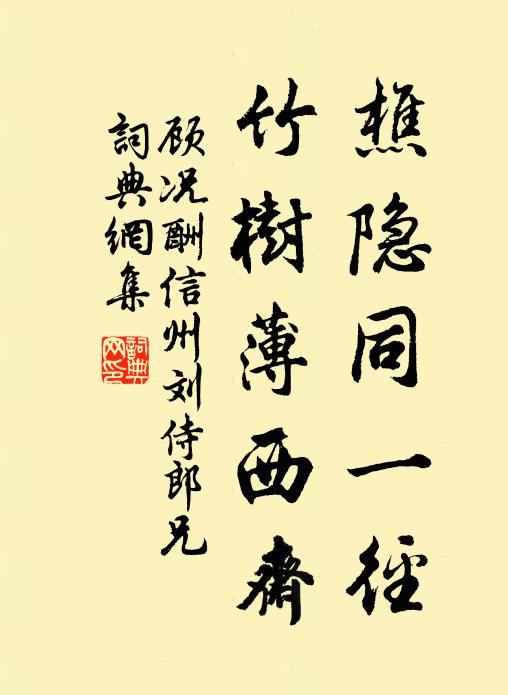 樵隐同一径
竹樹薄西齋
顾况酬信州刘侍郎兄
詞典網集
詞典
网印